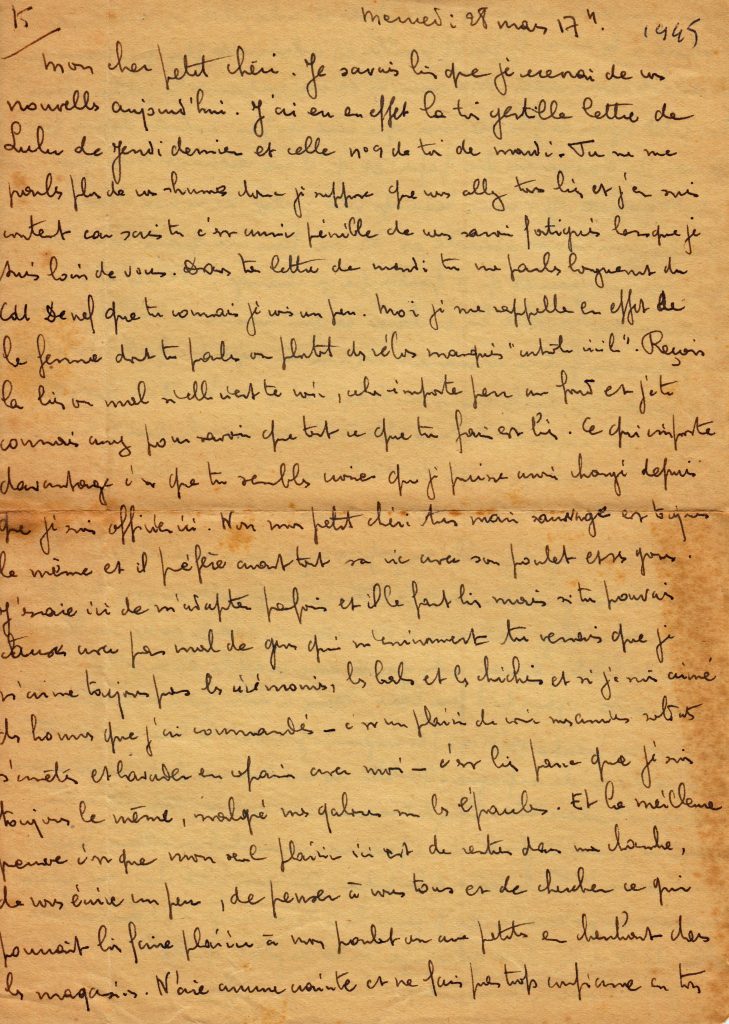 15
Mercredi 28 mars 17h. 1945
Mon cher petit chéri. Je savais bien que je recevrai de vos
nouvelles aujourd'hui. J'ai eu en effet la toi gentille lettre de
Lulu de Jeudi dernier et celle n°9 de toi de mardi. Tu ne me
parles plus de vos rhumes donc je suppose que vous allez tous bien et j'en suis
content car sais tu c'est aussi pénible de vous savoir fatigués lorsque je
suis loin de vous. Dans ta lettre de mardi tu me parles longuement du
Cdt que tu connais je crois un peu. Moi je me rappelle en effet de
la femme dont tu parles ou plutôt des vélos marqués
la bien ou mal si elle vient te voir, cela importe peu au fond et je te
connais assez pour savoir que tout ce que tu fais est bien. Ce qui importe
davantage c'est que tu sembles croire que je puisse avoir changé depuis
que je suis officier ici. Non mon petit chéri ton mari sauvage est toujours
le même et il préfère avant tout sa vie avec son poulet et ses gosses.
J'essaie ici de m'adapter parfois et il le faut bien mais si tu pouvais
causer avec pas mal de gens qui m'environnent tu verrais que je
n'aime toujours pas les cérémonies, les bals et les chichis et si je suis aimé
des hommes que j'ai commandés – c'est un plaisir de voir mes anciens soldats
s'arrêter et bavarder en copain avec moi – c'est bien parce que je suis
toujours le même, malgré mes galons sur les épaules. Et la meilleure
preuve c'est que mon seul plaisir ici est de rentrer dans ma chambre,
de vous écrire un peu, de penser à vous tous et de chercher ce qui
pourrait bien faire plaisir à mon poulet ou aux petits en cherchant dans
les magasins. N'aie aucune crainte et ne fais pas trop confiance au